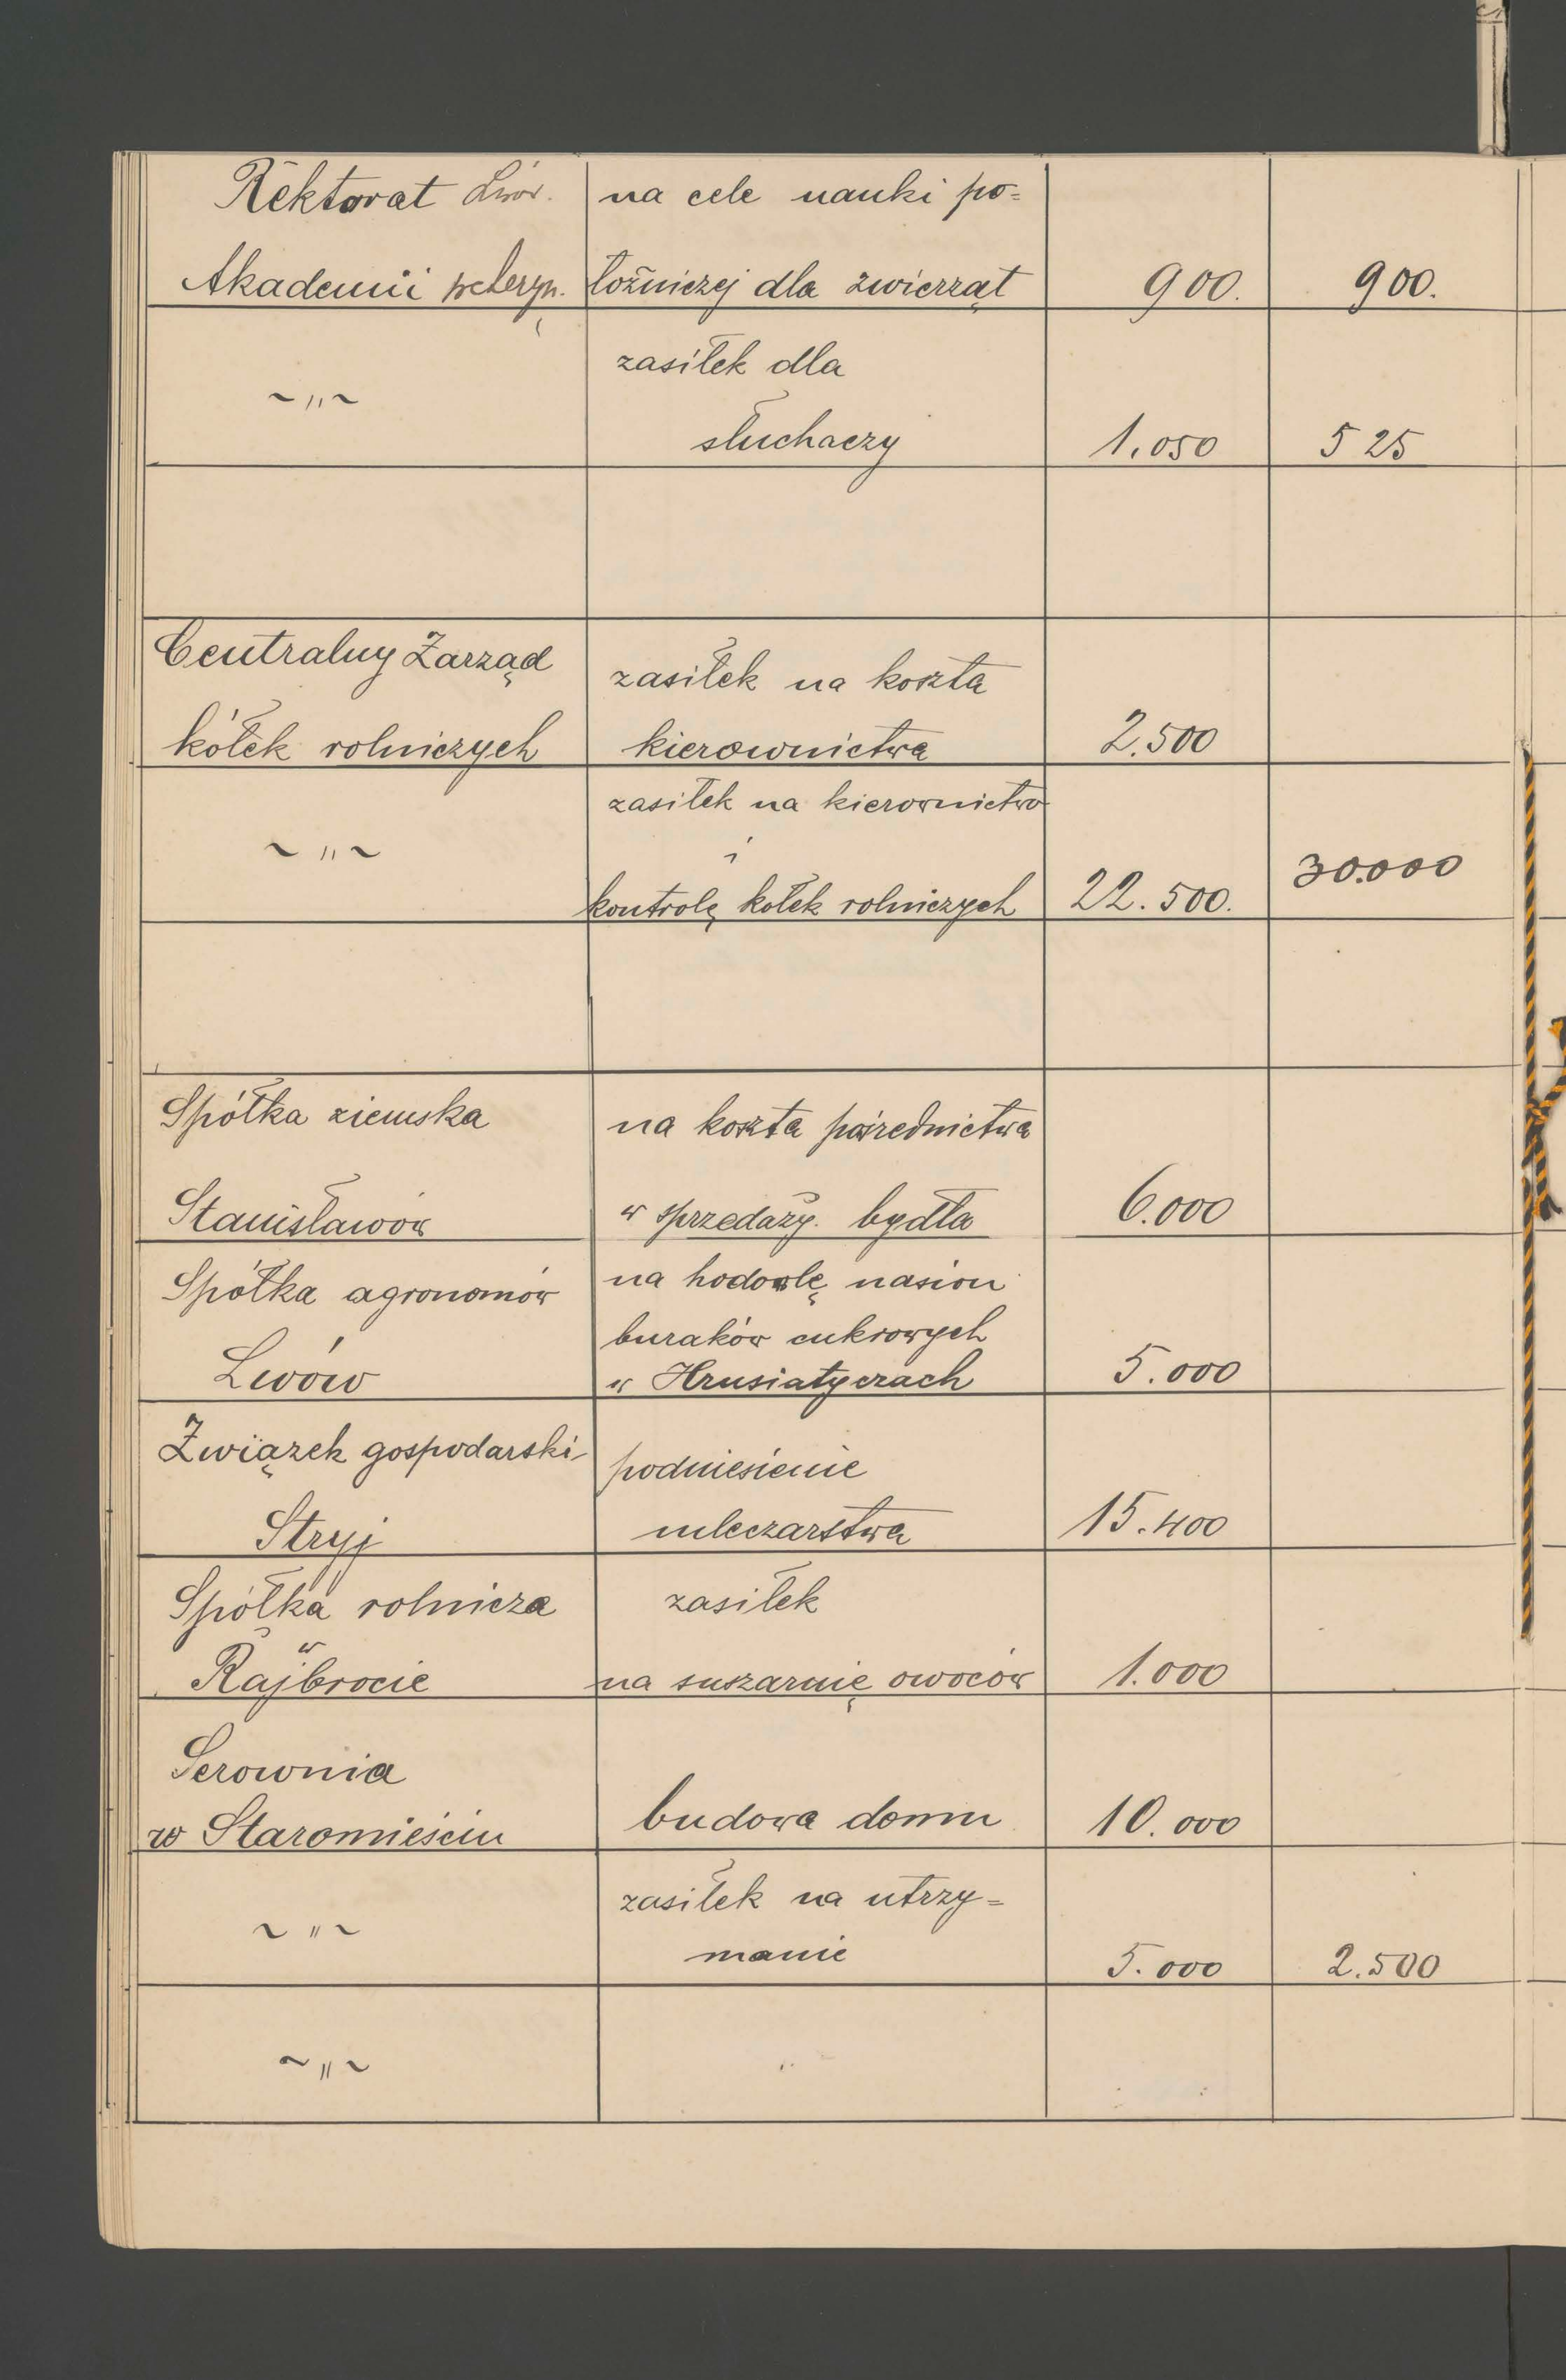 Rektorat Lwów.
Akademii weteryn.
na cele nauki po=
łożniczej dla zwierząt
900.
900.
~ „ ~
zasiłek dla
słuchaczy
1.050
525
Centralny Zarząd
kółek rolniczych
zasiłek na koszta
kierownictwa
2.500
~ „ ~
zasiłek na kierownictwo
i
kontrolę kołek rolniczych
22.500.
30.000
Spółka ziemska
Stanisławów
na koszta pośrednictwa
w sprzedaży. bydła
6.000
Spółka agronomów
Lwów
na hodowlę nasion
buraków cukrowych
w Hrusiatyczach
5.000
Związek gospodarski
Stryj
podniesienie
mleczarstwa
15.400
Spółka rolnicza
w
Rajbrocie
zasiłek
na suszarnię owoców
1.000
Serownia
w Staromieściu
budowa domu
10.000
~ „ ~
zasiłek na utrzy=
manie
5.000
2.500
~ „ ~